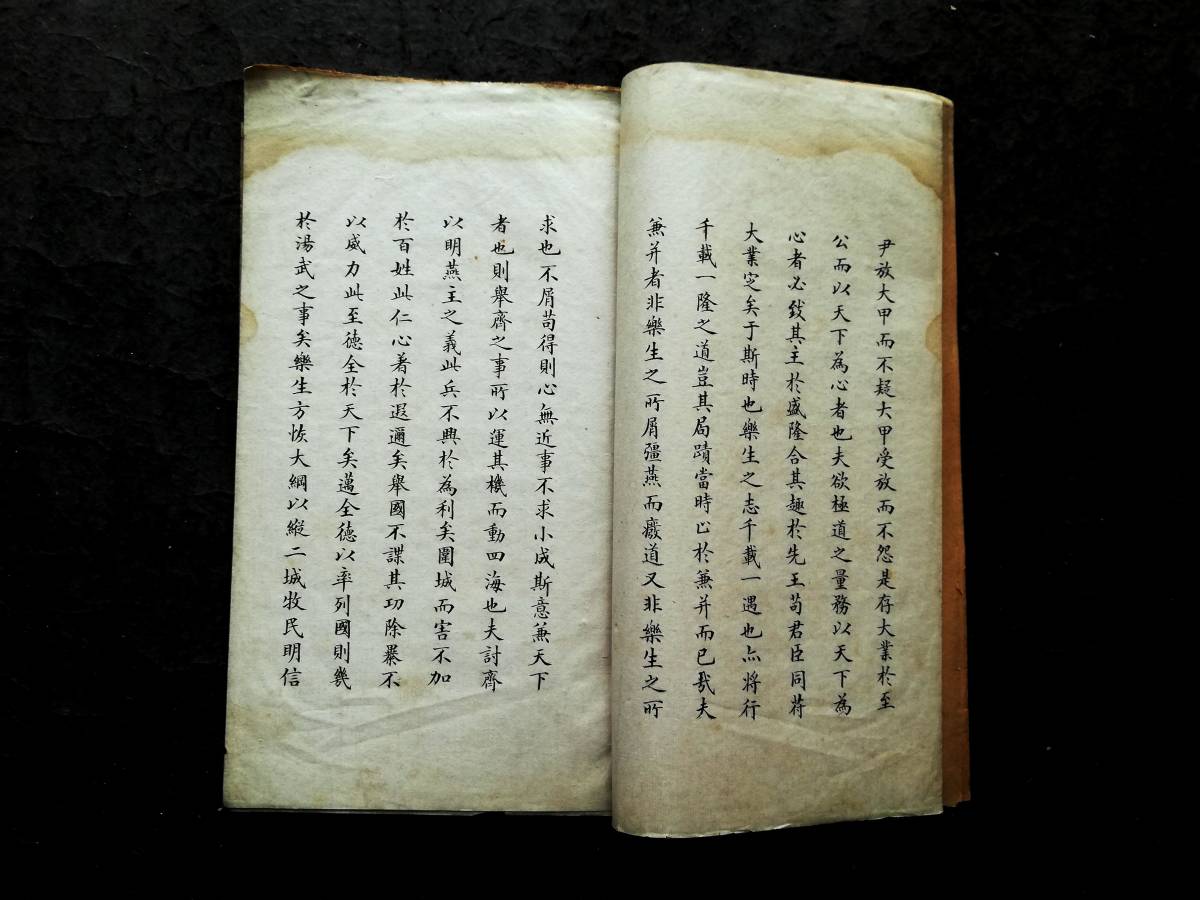 尹放大甲而不疑大甲受放而不怨是存大業於至
公而以天下為心者也夫欲極道之量務以天下為
心者必致其主於盛隆合其趣於先王苟君臣同苻
大業定矣于斯時也樂生之志千載一遇也亦將行
千載一隆之道豈其局蹟當時止於兼并而已哉夫
兼并者非樂生之所屑彊燕而廢道又非樂生之所
求也不屑苟得則心無近事不求小成斯意兼天下
者也則舉齊之事所以運其機而動四海也夫討齊
以明燕主之義此兵不興於為利矣圍城而害不加
於百姓此仁心著於遐邇矣舉國不謀其功除暴不
以威力此至德全於天下矣邁全德以率列國則幾
於湯武之事矣樂生方恢大綱以縱二城牧民明信